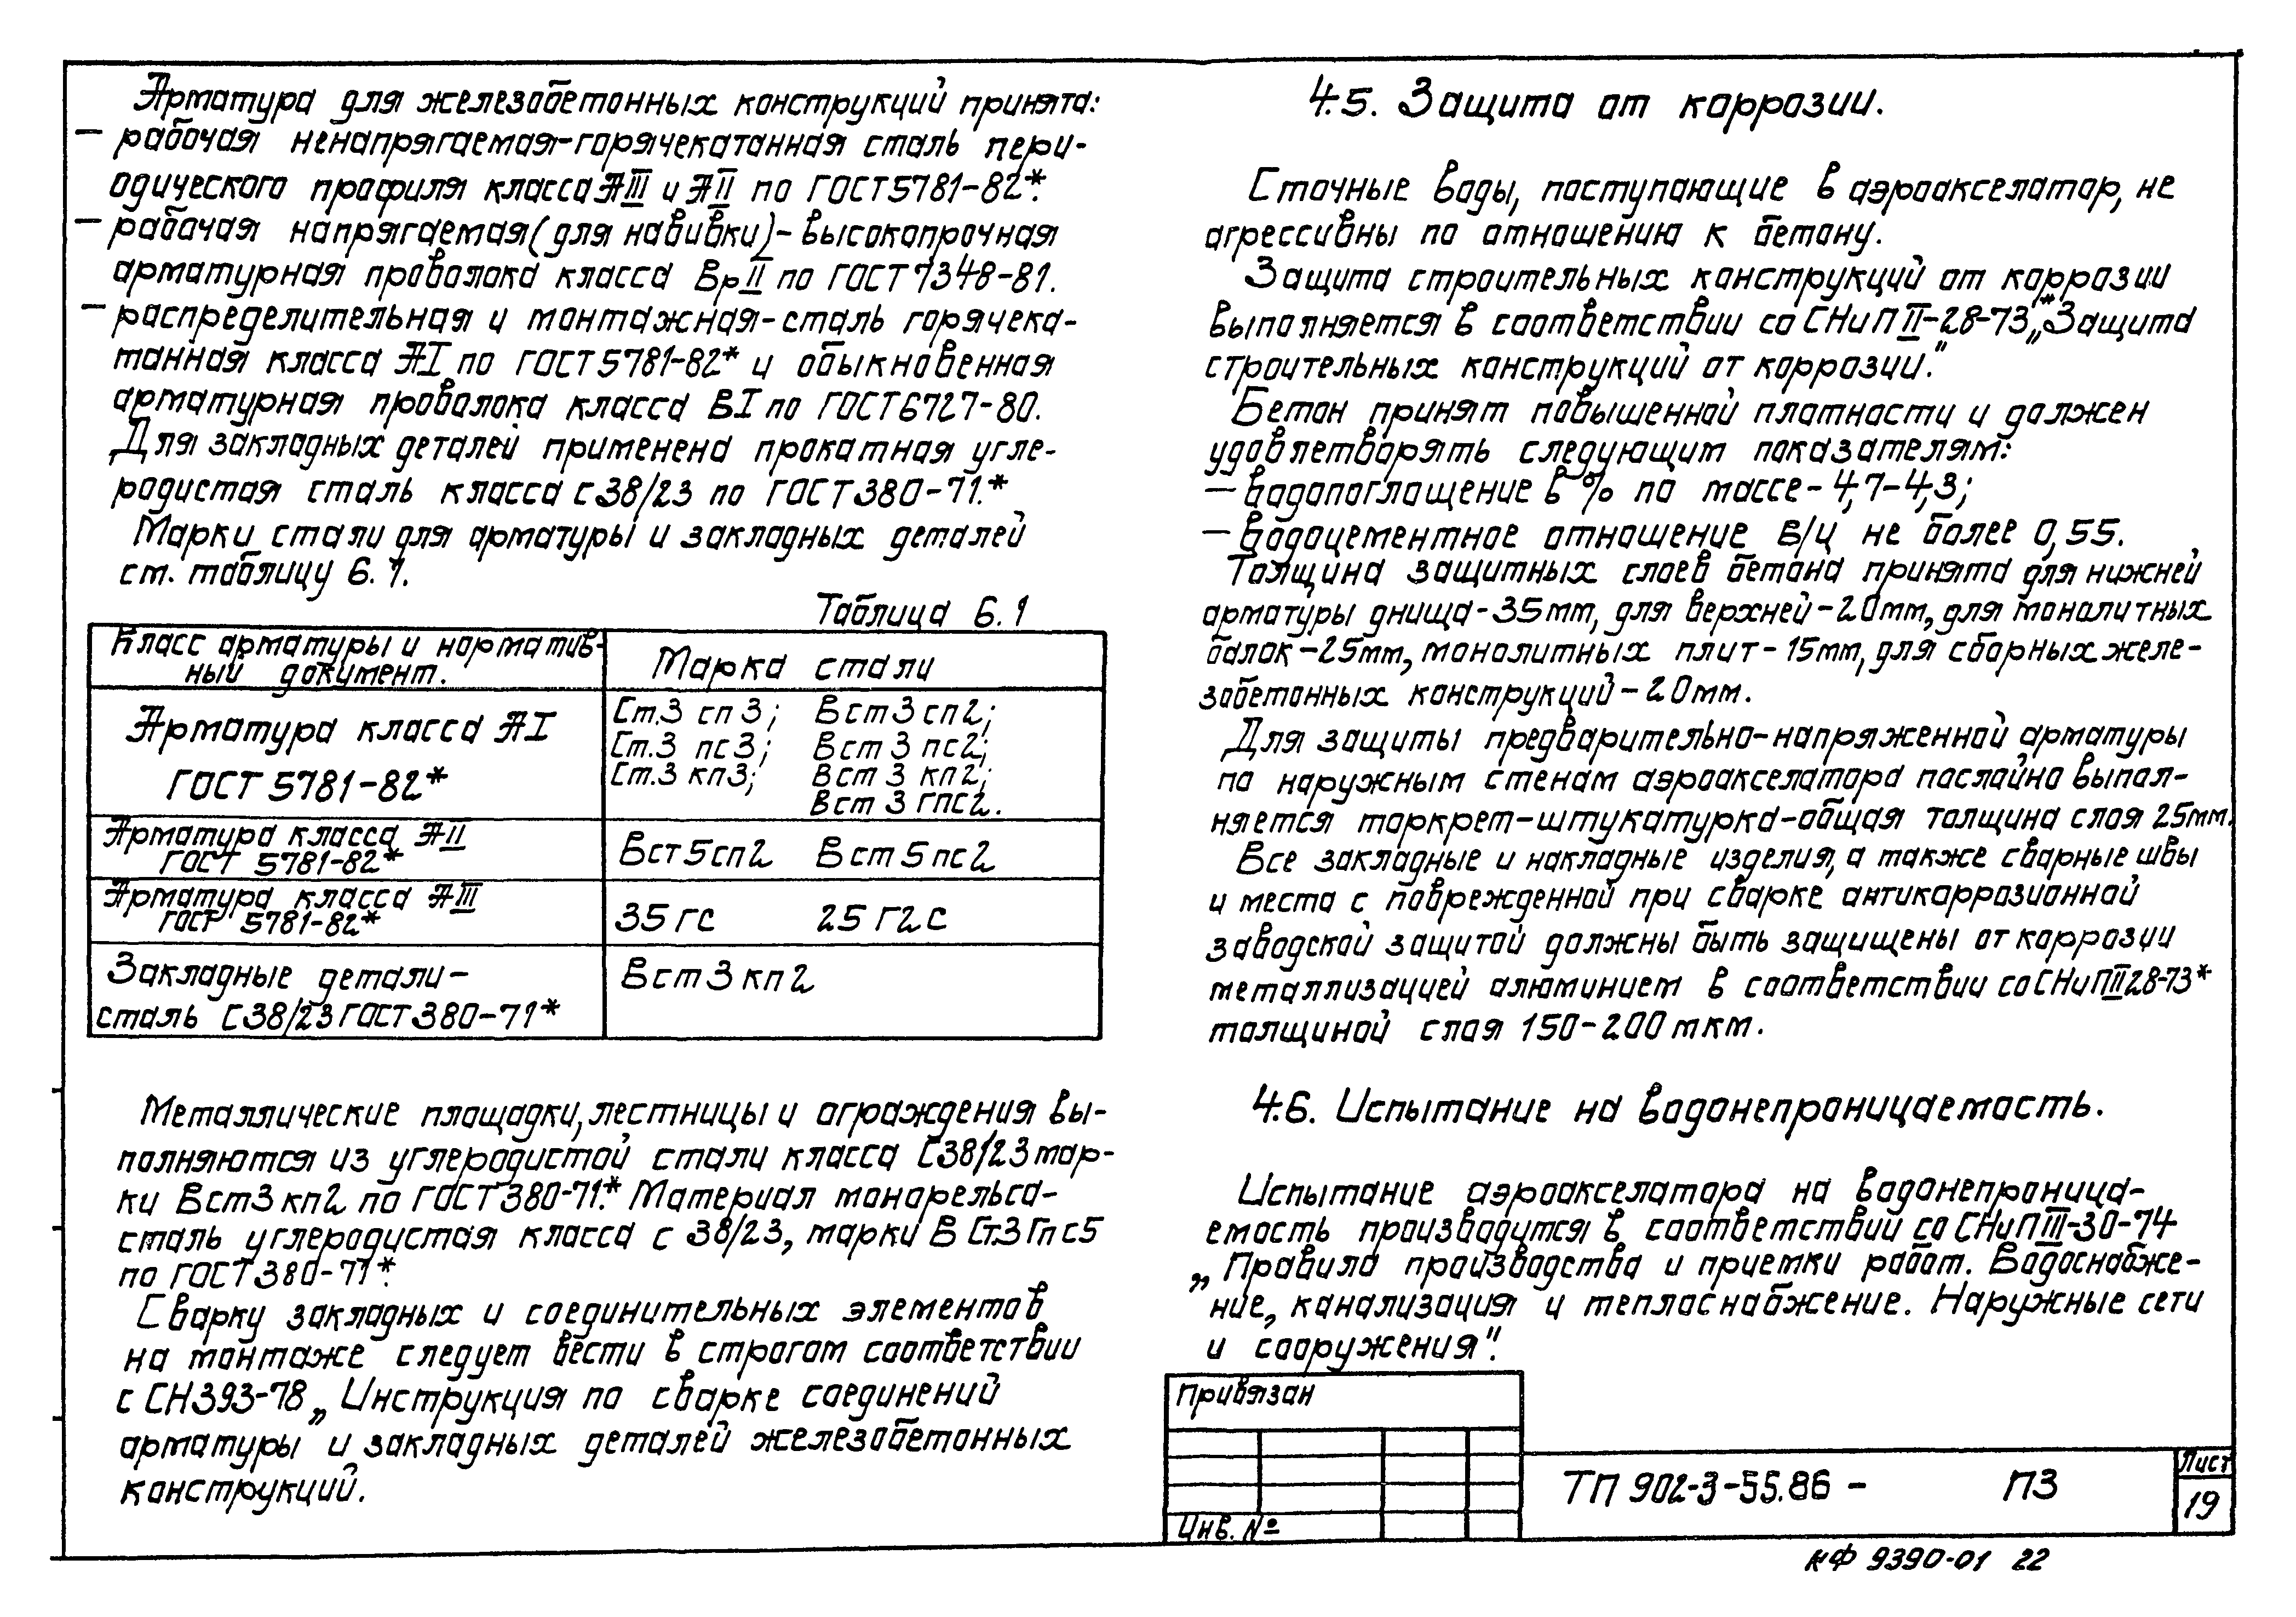 Арматура для железобетонных конструкций принята:
— рабочая ненапрягаемая-горячекатанная сталь пери-
одического профиля класса АIII и АII по ГОСТ 5781-82*.
— рабочая напрягаемая (для навивки)-высокопрочная
арматурная проволока класса ВрII по ГОСТ 7348-81.
— распределительная и монтажная-сталь горячека-
танная класса АI по ГОСТ 5781-82* и обыкновенная
арматурная проволока класса ВI по ГОСТ 6727-80.
Для закладных деталей применена прокатная угле-
родистая сталь класса с 38/23 по ГОСТ 380-71.*
Марки стали для арматуры и закладных деталей
см. таблицу 6.1.
Таблица 6.1
Класс арматуры и норматив-
ный документ.
Марка стали
Арматура класса АI
ГОСТ 5781-82*
Ст.3 сп 3; Вст 3 сп 2;
Ст.3 пс 3; Вст 3 пс 2;
Ст.3 кп 3; Вст 3 кп 2;
Вст 3 гпс 2.
Арматура класса АII
ГОСТ 5781-82*
Вст 5 сп 2 Вст 5 пс 2
Арматура класса АIII
ГОСТ 5781-82*
35 ГС 25 Г2 С
Закладные детали-
сталь С38/23 ГОСТ 380-71*
Вст 3 кп 2
Металлические площадки, лестницы и ограждения вы-
полняются из углеродистой стали класса С38/23 мар-
ки Вст 3 кп 2 по ГОСТ 380-71.* Материал монорельса-
сталь углеродистая класса с 38/23, марки В Ст.3 Гп с5
по ГОСТ 380-71*.
Сварку закладных и соединительных элементов
на монтаже следует вести в строгом соответствии
с СН 393-78 „Инструкция по сварке соединений
арматуры и закладных деталей железобетонных
конструкций.
4.5. Защита от коррозии.
Сточные воды, поступающие в аэроакселатор, не
агрессивны по отношению к бетону.
Защита строительных конструкций от коррозии
выполняется в соответствии со СНиП II-28-73* „Защита
строительных конструкций от коррозии."
Бетон принят повышенной плотности и должен
удовлетворять следующим показателям:
— водопоглощение в % по массе - 4,7-4,3;
— водоцементное отношение В/Ц не более 0,55.
Толщина защитных слоев бетона принята для нижней
арматуры днища-35мм, для верхней-20мм, для монолитных
балок-25мм, монолитных плит-15мм, для сборных желе-
зобетонных конструкций-20мм.
Для защиты предварительно-напряженной арматуры
по наружным стенам аэроакселатора послойно выпол-
няется торкрет-штукатурка-общая толщина слоя 25мм.
Все закладные и накладные изделия, а также сварные швы
и места с поврежденной при сварке антикоррозионной
заводской защитой должны быть защищены от коррозии
металлизацией алюминием в соответствии со СНиП II 28-73*
толщиной слоя 150-200 мкм.
4.6. Испытание на водонепроницаемость.
Испытание аэроакселатора на водонепроница-
емость производится в соответствии со СНиП III-30-74
„Правила производства и приемки работ. Водоснабже-
ние, канализация и теплоснабжение. Наружные сети
и сооружения".
Привязан
Инв. №
ТП 902-3-55.86 - ПЗ
Лист
19
КФ 9390-01 22